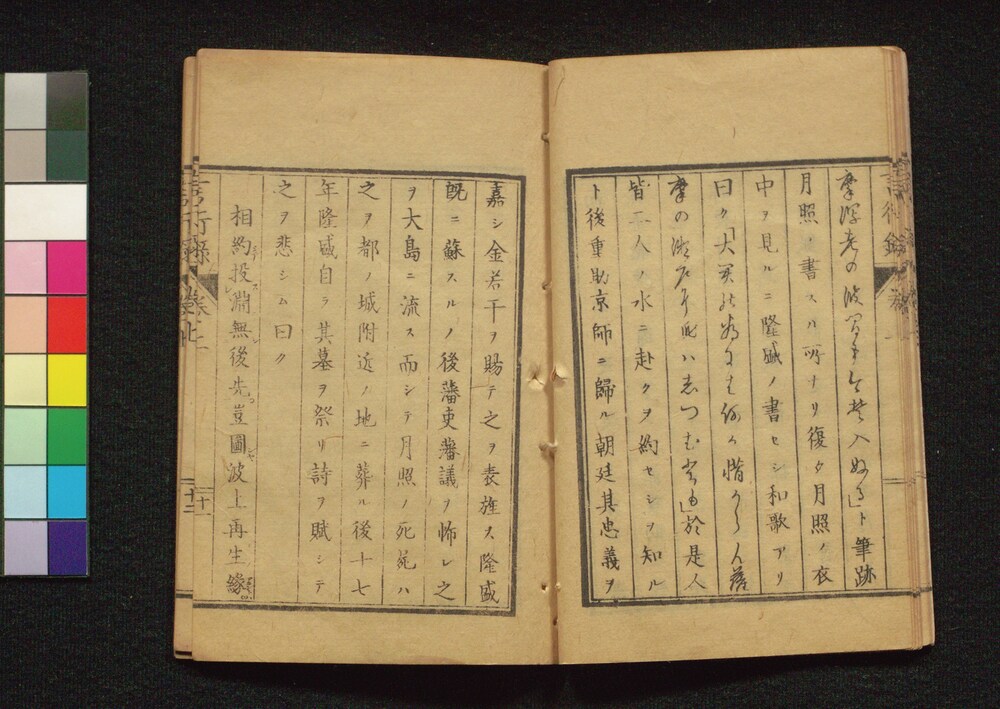 摩潟老の波間にや入ぬる」ト筆跡
月照ノ書スル所ナリ復タ月照ノ衣
中ヲ見ルニ隆盛ノ書セシ和歌アリ
曰ク「大君の為には何か惜からん薩
摩の迫戸に身は志つむとも」於是人
皆二人ノ水ニ赴クヲ約セシヲ知ル
ト後重助京師ニ歸ル朝廷其忠義ヲ
嘉シ金若干ヲ賜テ之ヲ表旌ス隆盛
既ニ蘇スルノ後藩吏藩議ヲ怖レ之
ヲ大島ニ流ス而シテ月照ノ死屍ハ
之ヲ都ノ城附近ノ地ニ葬ル後十七
年隆盛自ラ其墓ヲ祭リ詩ヲ賦シテ
之ヲ悲シム曰ク
相約投淵無後先豈圖波上再生緣
言行錄
十一
十二